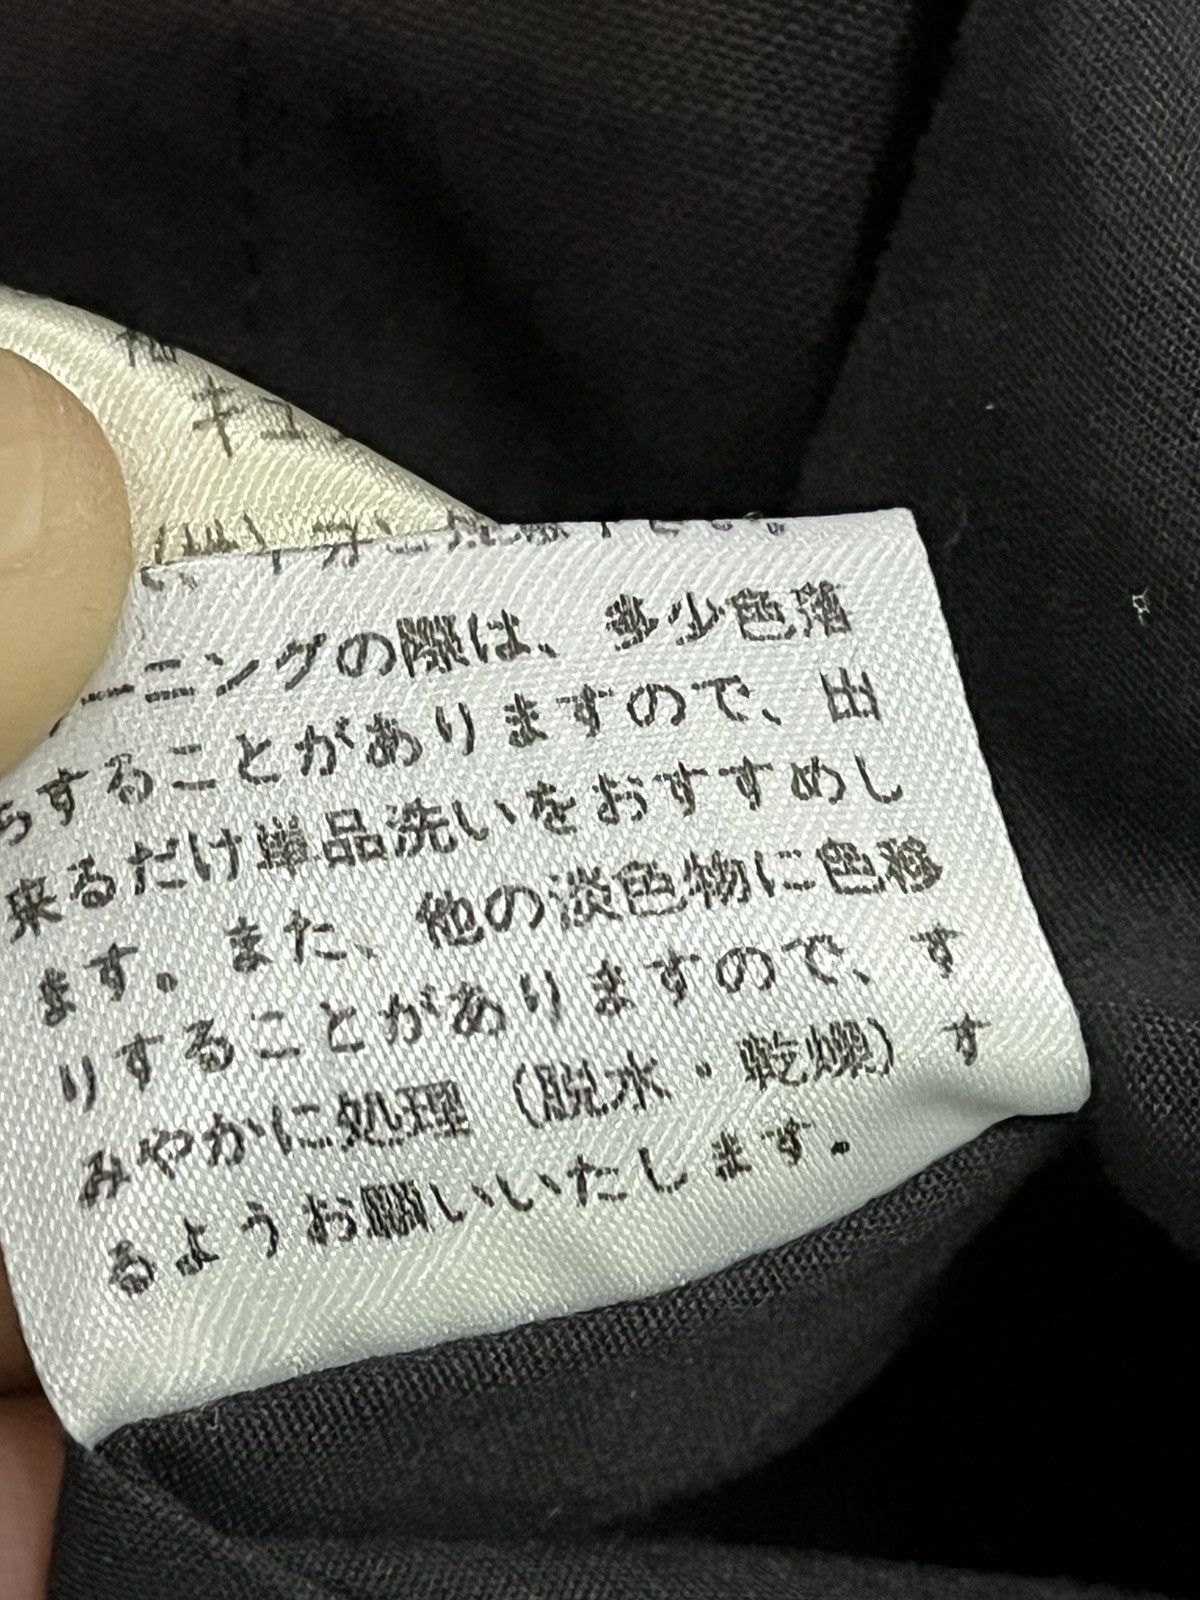 キュ
ーニングの際は、多少色落
ちすることがありますので、出
来るだけ単品洗いをおすすめし
ます。また、他の淡色物に色移
りすることがありますので、す
みやかに処理（脱水・乾燥）す
るようお願いいたします。